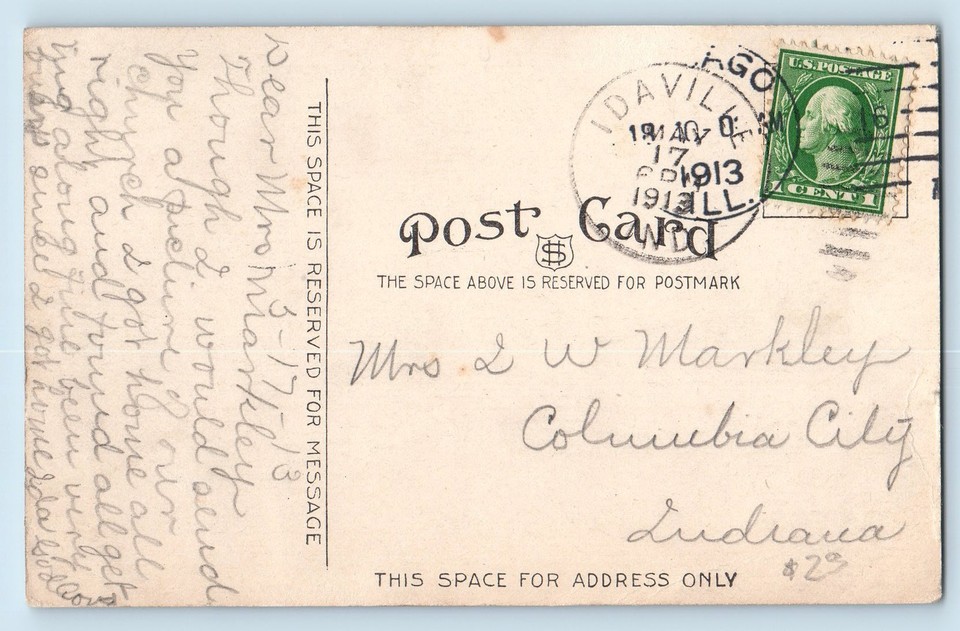 5-17-13
Dear Mrs Markley
Though I would send
you a picture of our
church I got home all
right and found all get
ting along fine been very
since I got home Ida
THIS SPACE IS RESERVED FOR MESSAGE
Post Card
THE SPACE ABOVE IS RESERVED FOR POSTMARK
IDAVILLE
MAY
17
1913
IND.
1913
ILL.
U.S. POSTAGE
1 CENT 1
Mrs I W Markley
Columbia City
Indiana
$29
THIS SPACE FOR ADDRESS ONLY